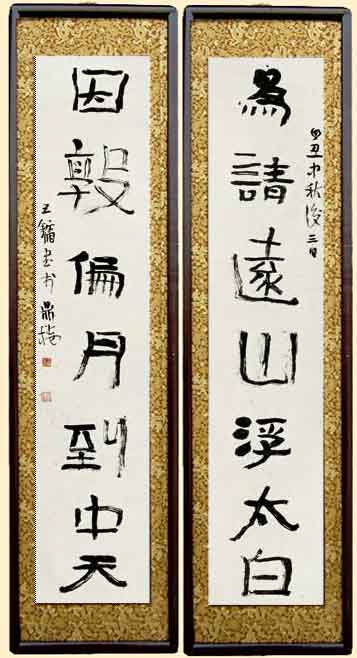 為請遠山浮太白
丑中秋後三日
因偏月到中天
王鏞書于